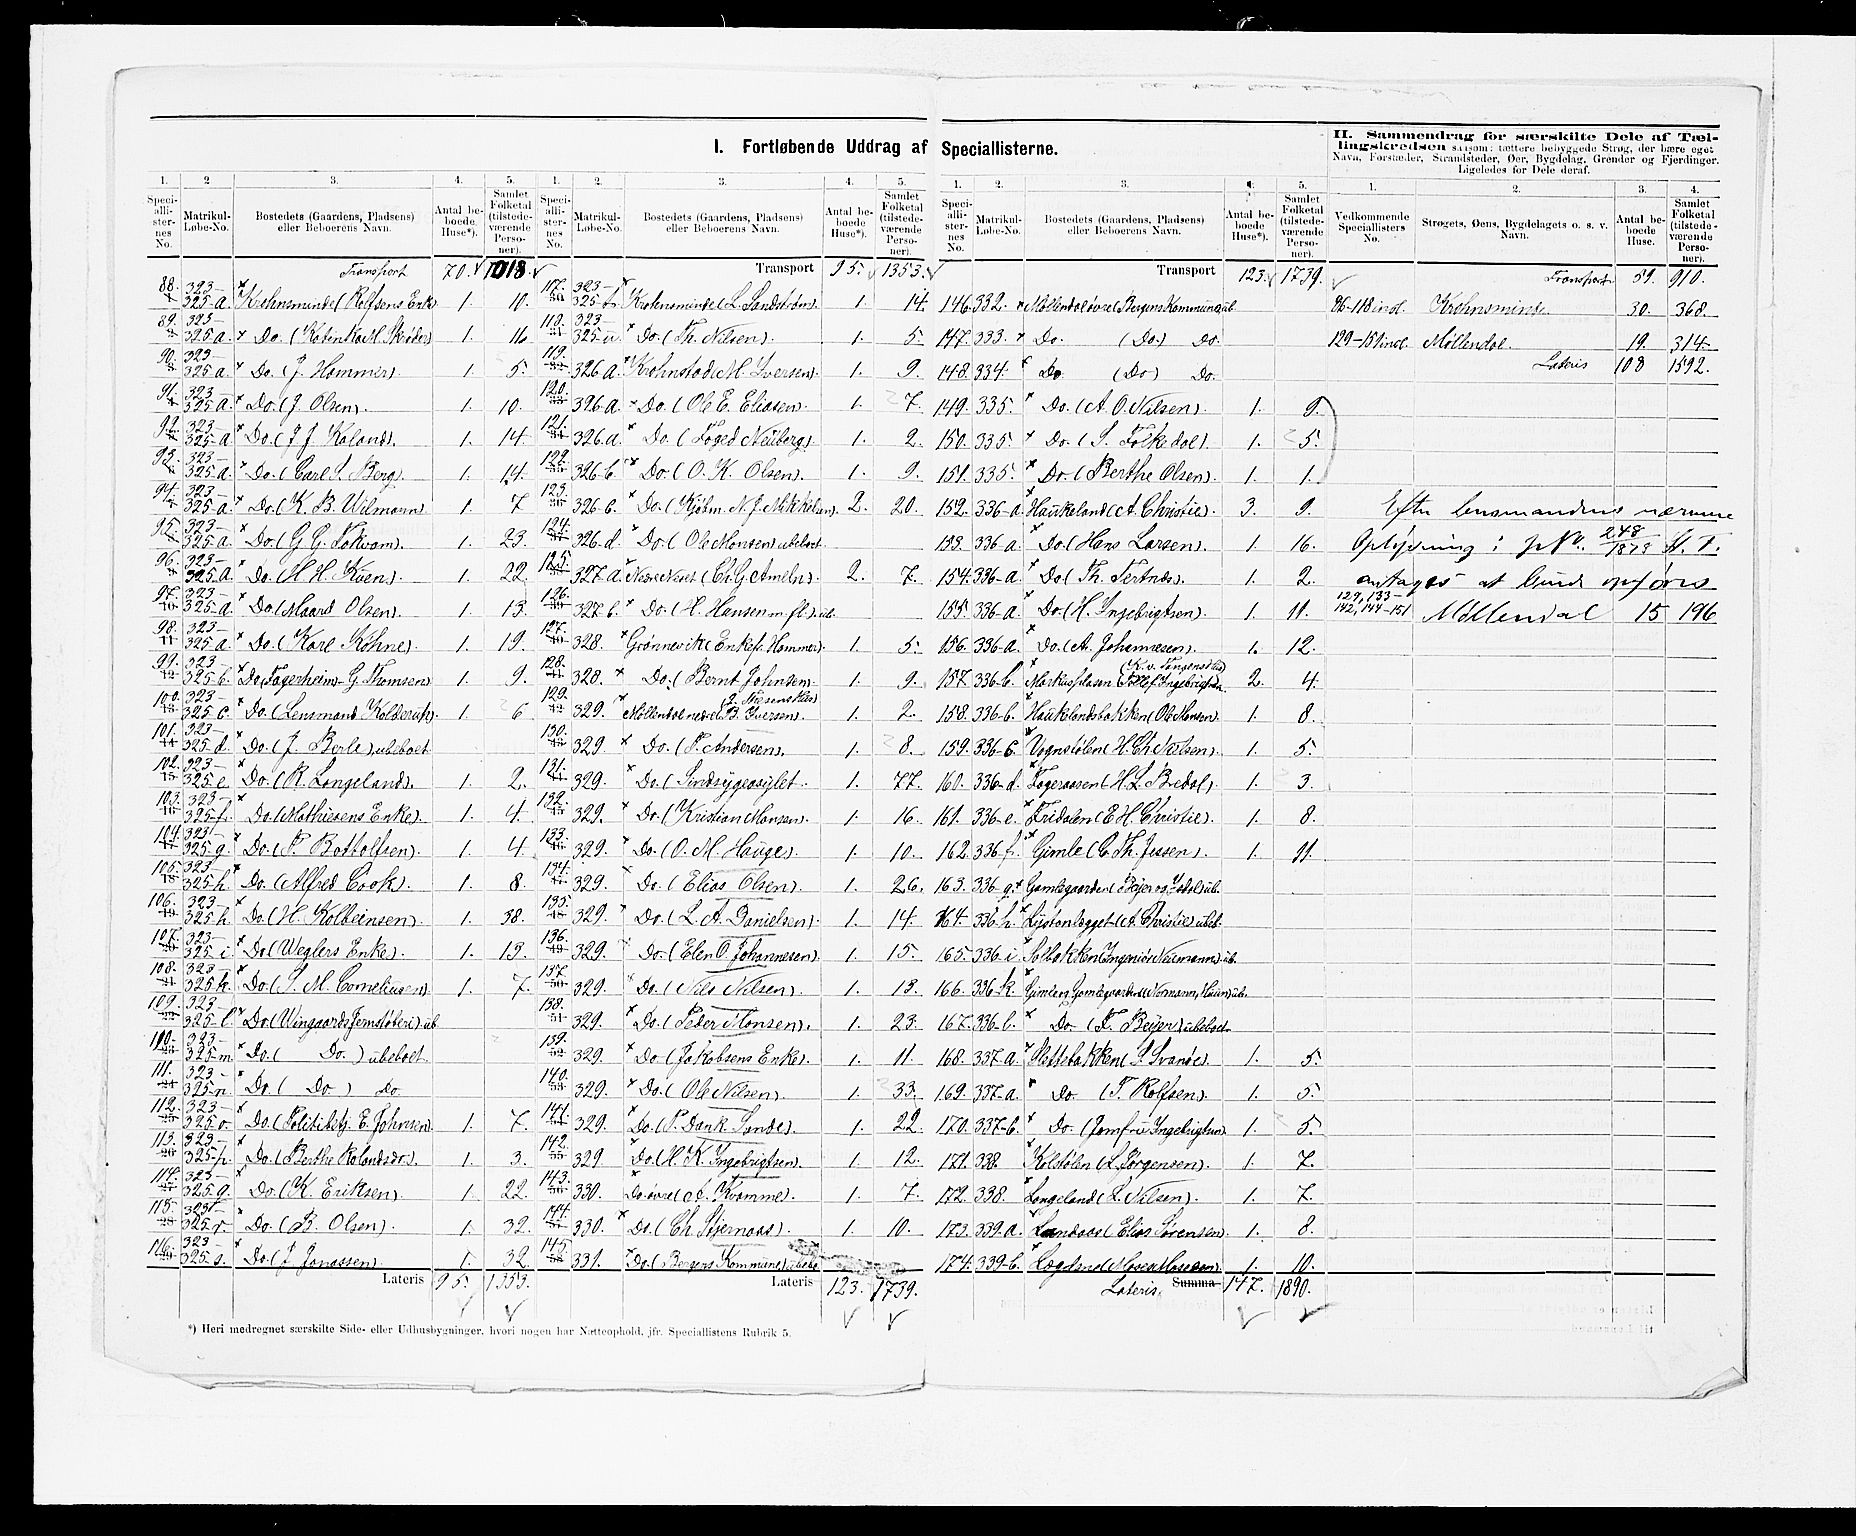 I. Fortløbende Uddrag af Speciallisterne.
II. Sammendrag for særskilte Dele af Tæl-
lingskredsen saasom: tættere bebyggede Strøg, der bære eget
Navn, Forstæder, Strandsteder, Øer, Bygdelag, Grender og Fjerdinger.
Ligeledes for Dele deraf.
1. 2 3. 4. 5.
Speciallisternes No. Matrikul-Løbe-No. Bostedets (Gaardens, Pladsens) eller Beboerens Navn. Antal beboede Huse*). Samlet Folketal (tilstedeværende Personer).
Transport 70. 1018.
88. 323-325-a. Krohnsminde (Rolfsens Enke 1. 10.
89. 323-325-a. Do. (Katinka M. Skrøder) 1. 16
90. 323-325-a. Do. (J. Hammer). 1. 5.
91. 323-325-a. Do. (J. Olsen). 1. 10.
92. 323-325-a Do. (J. J. Kaland). 1. 14.
93. 323-325-a. Do. (Carl S. Berg). 1. 14.
94. 323-325-a. Do. (K. B. Wilmann) 1. 7
95. 323-325-a. Do. (G. G. Lokvam). 1. 23.
96. 323-325-a. Do. (H. H. Koen). 1. 22.
97. 323-325-a. Do. (Maard Olsen). 1. 13.
98. 323-325-a. Do. (Karl Köhne). 1. 19.
99. 323-325-b. Do. (Fagerheim - G. Thomsen) 1. 9.
100. 323-325-c. Do. (Lensmand Kolderup). 1. 6
101. 323-325-d. Do. (J. Berle) ubeboet
102. 323-325-e. Do. (R. Langeland). 1. 2.
103. 323-325-f. Do. (Mathiesens Enke). 1. 4.
104. 323-325-g. Do. (P. Bottolfsen). 1. 4.
105. 323-325-h. Do. (Alfred Cook). 1. 8.
106. 323-325-h. Do. (H. Kolbeinsen). 1. 38.
107. 323-325-i Do. (Weglers Enke). 1. 13.
108. 323-325-k. Do. (S. M. Corneliusen) 1. 7.
109. 323-325-l. Do. (Wingaards Jernstøberi) ub.
110. 323-325-m Do. ( Do. ) ubeboet.
111. 323-325-n Do. ( Do. ) do
112. 323-325-o. Do. (Politibetj. E. Johnsen). 1. 7.
113. 323-325-p. Do. (Berthe Rolandsdr.). 1. 3.
114. 323-325-q. Do. (K. Eriksen). 1. 22.
115. 323-325-r. Do. (B. Olsen). 1. 32.
116. 323-325-s. Do. (J. Jonassen). 1. 32.
Lateris 95. 1353.
1. 2. 3. 4. 5.
Speciallisternes No. Matrikul-Løbe-No. Bostedets (Gaardens, Pladsens) eller Beboerens Navn. Antal beboede Huse*). Samlet Folketal (tilstedeværende Personer).
Transport 95. 1353.
117. 323-325-t. Krohnsminde (L. Sandstrøm). 1. 14.
118. 323-325-u Do. (Th. Nilsen). 1. 5.
119. 326-a. Krohnstad (M. Iversen). 1. 9.
120. 326-a. Do. (Ole E. Eliasen). 1. 7.
121. 326-a. Do. (Foged Neuberg) 1. 2.
122. 326-b. Do. (O. K. Olsen). 1. 9.
123. 326-c. Do. (Kjøbm. N. J. Mikkelsen). 2. 20.
124. 326-d. Do. (Ole Monsen) ubeboet.
125. 327-a. Nesre Neset (Ch. G. Ameln). 2. 7.
126. 327-b. Do. (H. Hansen m. fl.) ub.
127. 328. Grønnevik (Enkef. Hammer). 1. 5.
128. 328. Do. (Bernt Johnsen). 1. 9.
129. 329. Møllendal nedre (B. Iversen). 1. 2.
130. 329 Do. (P. Andersen). 1. 8.
131. 329. Do. (Sindsygeasylet. 1. 77.
132. 329. Do. (Kristian Monsen). 1. 16.
133. 329. Do. (O. M. Hauge). 1. 10.
134. 329. Do. (Elias Olsen). 1. 26.
135. 329. Do. (L. A. Danielsen). 1. 14.
136. 329. Do. (Elen O. Johannesen). 1. 15.
137. 329. Do. (Nils Nilsen). 1. 13.
138. 329. Do. (Peder Monsen). 1. 23.
139. 329. Do. (Jakobsens Enke). 1. 11.
140. 329. Do. (Ole Nilsen). 1. 33.
141. 329. Do. (P. Dank Sande). 1. 22.
142. 329. Do. (H. K. Ingebrigtsen). 1. 12.
143. 330. Do. øvre (A. Kvamme). 1. 7.
144. 330. Do. (Ch. Stjernaas). 1. 10.
145. 331. Do. (Bergens Kommune) ubebo.
Lateris 123. 1739.
1. 2. 3. 4. 5.
Speciallisternes No. Matrikul-Løbe-No. Bostedets (Gaardens, Pladsens) eller Beboerens Navn. Antal beboede Huse*). Samlet Folketal (tilstedeværende Personer).
Transport 123. 1739.
146. 332. Møllendal øvre (Bergens Kommune) ub.
147. 333. Do. (Do) Do.
148. 334. Do (Do) Do.
149. 335. Do. (A. O. Nilsen). 1. 9.
150. 335. Do. (S. Folkedal). 1. 5.
151. 335. Do. (Berthe Olsen). 1. 1.
152. 336-a. Haukeland (A. Christie). 3. 9.
153. 336-a. Do. (Hans Larsen). 1. 16.
154. 336-a. Do. (Th. Tertnæs). 1. 2.
155. 336-a. Do. (H. Ingebrigtsen). 1. 11.
156. 336-a. Do. (A. Johannesen). 1. 12.
157. 336-b. Markusplasen 2. 4.
158. 336-b. Haukelandsbakken (Ole Monsen). 1. 8.
159. 336-c. Vognstølen (H. Ch. Nilsen). 1. 5.
160. 336-d. Fageraasen (H. L. Bredal). 1. 3.
161. 336-e. Fridalen (E. H. Christie). 1. 8.
162. 336-f. Gimle (C. Th. Jessen). 1. 11.
163. 336-g. Gamlegaarden ub.
164. 336-h. Lystanlægget (A. Christie) ubeb.
165. 336-i Solbakken (Ingeniør Neumann) ub.
166. 336-k. Gimlen Gamlegaarden ub.
167. 336-l. Do (F. Beyer) ubeboet.
168. 337-a. Slettebakken (S. Svanøe). 1. 5.
169. 337-a. Do (T. Rolfsen). 1. 5.
170. 337-b. Do. (Jomfru Ingebrigtsen) 1. 5.
171. 338. Kolstølen (L. Jørgensen). 1. 7.
172. 338. Langeland (L. Nilsen). 1. 7.
173. 339-a. Landaas (Elias Sørensen). 1. 8.
174. 339-b. Lægdene 1. 10.
Lateris. Summa 147. 1890.
1. 2. 3. 4.
Vedkommende Speciallisters No. Strøgets, Øens, Bygdelagets o. s. v. Navn. Antal beboede Huse. Samlet Folketal (tilstedeværende Personer).
Transport 59. 910.
86-118 incl. Krohnsminde. 30. 368.
129-151 incl. Møllendal. 19. 314.
Lateris 108 1592.
Efter lensmandens nærmere
Oplysning i 248/1878 St. T.
antages at burde opføres
129, 133-142, 144-151 Møllendal 15 196
*) Heri medregnet særskilte Side- eller Udhusbygninger, hvori nogen har Natteophold, jfr. Speciallistens Rubrik 5.